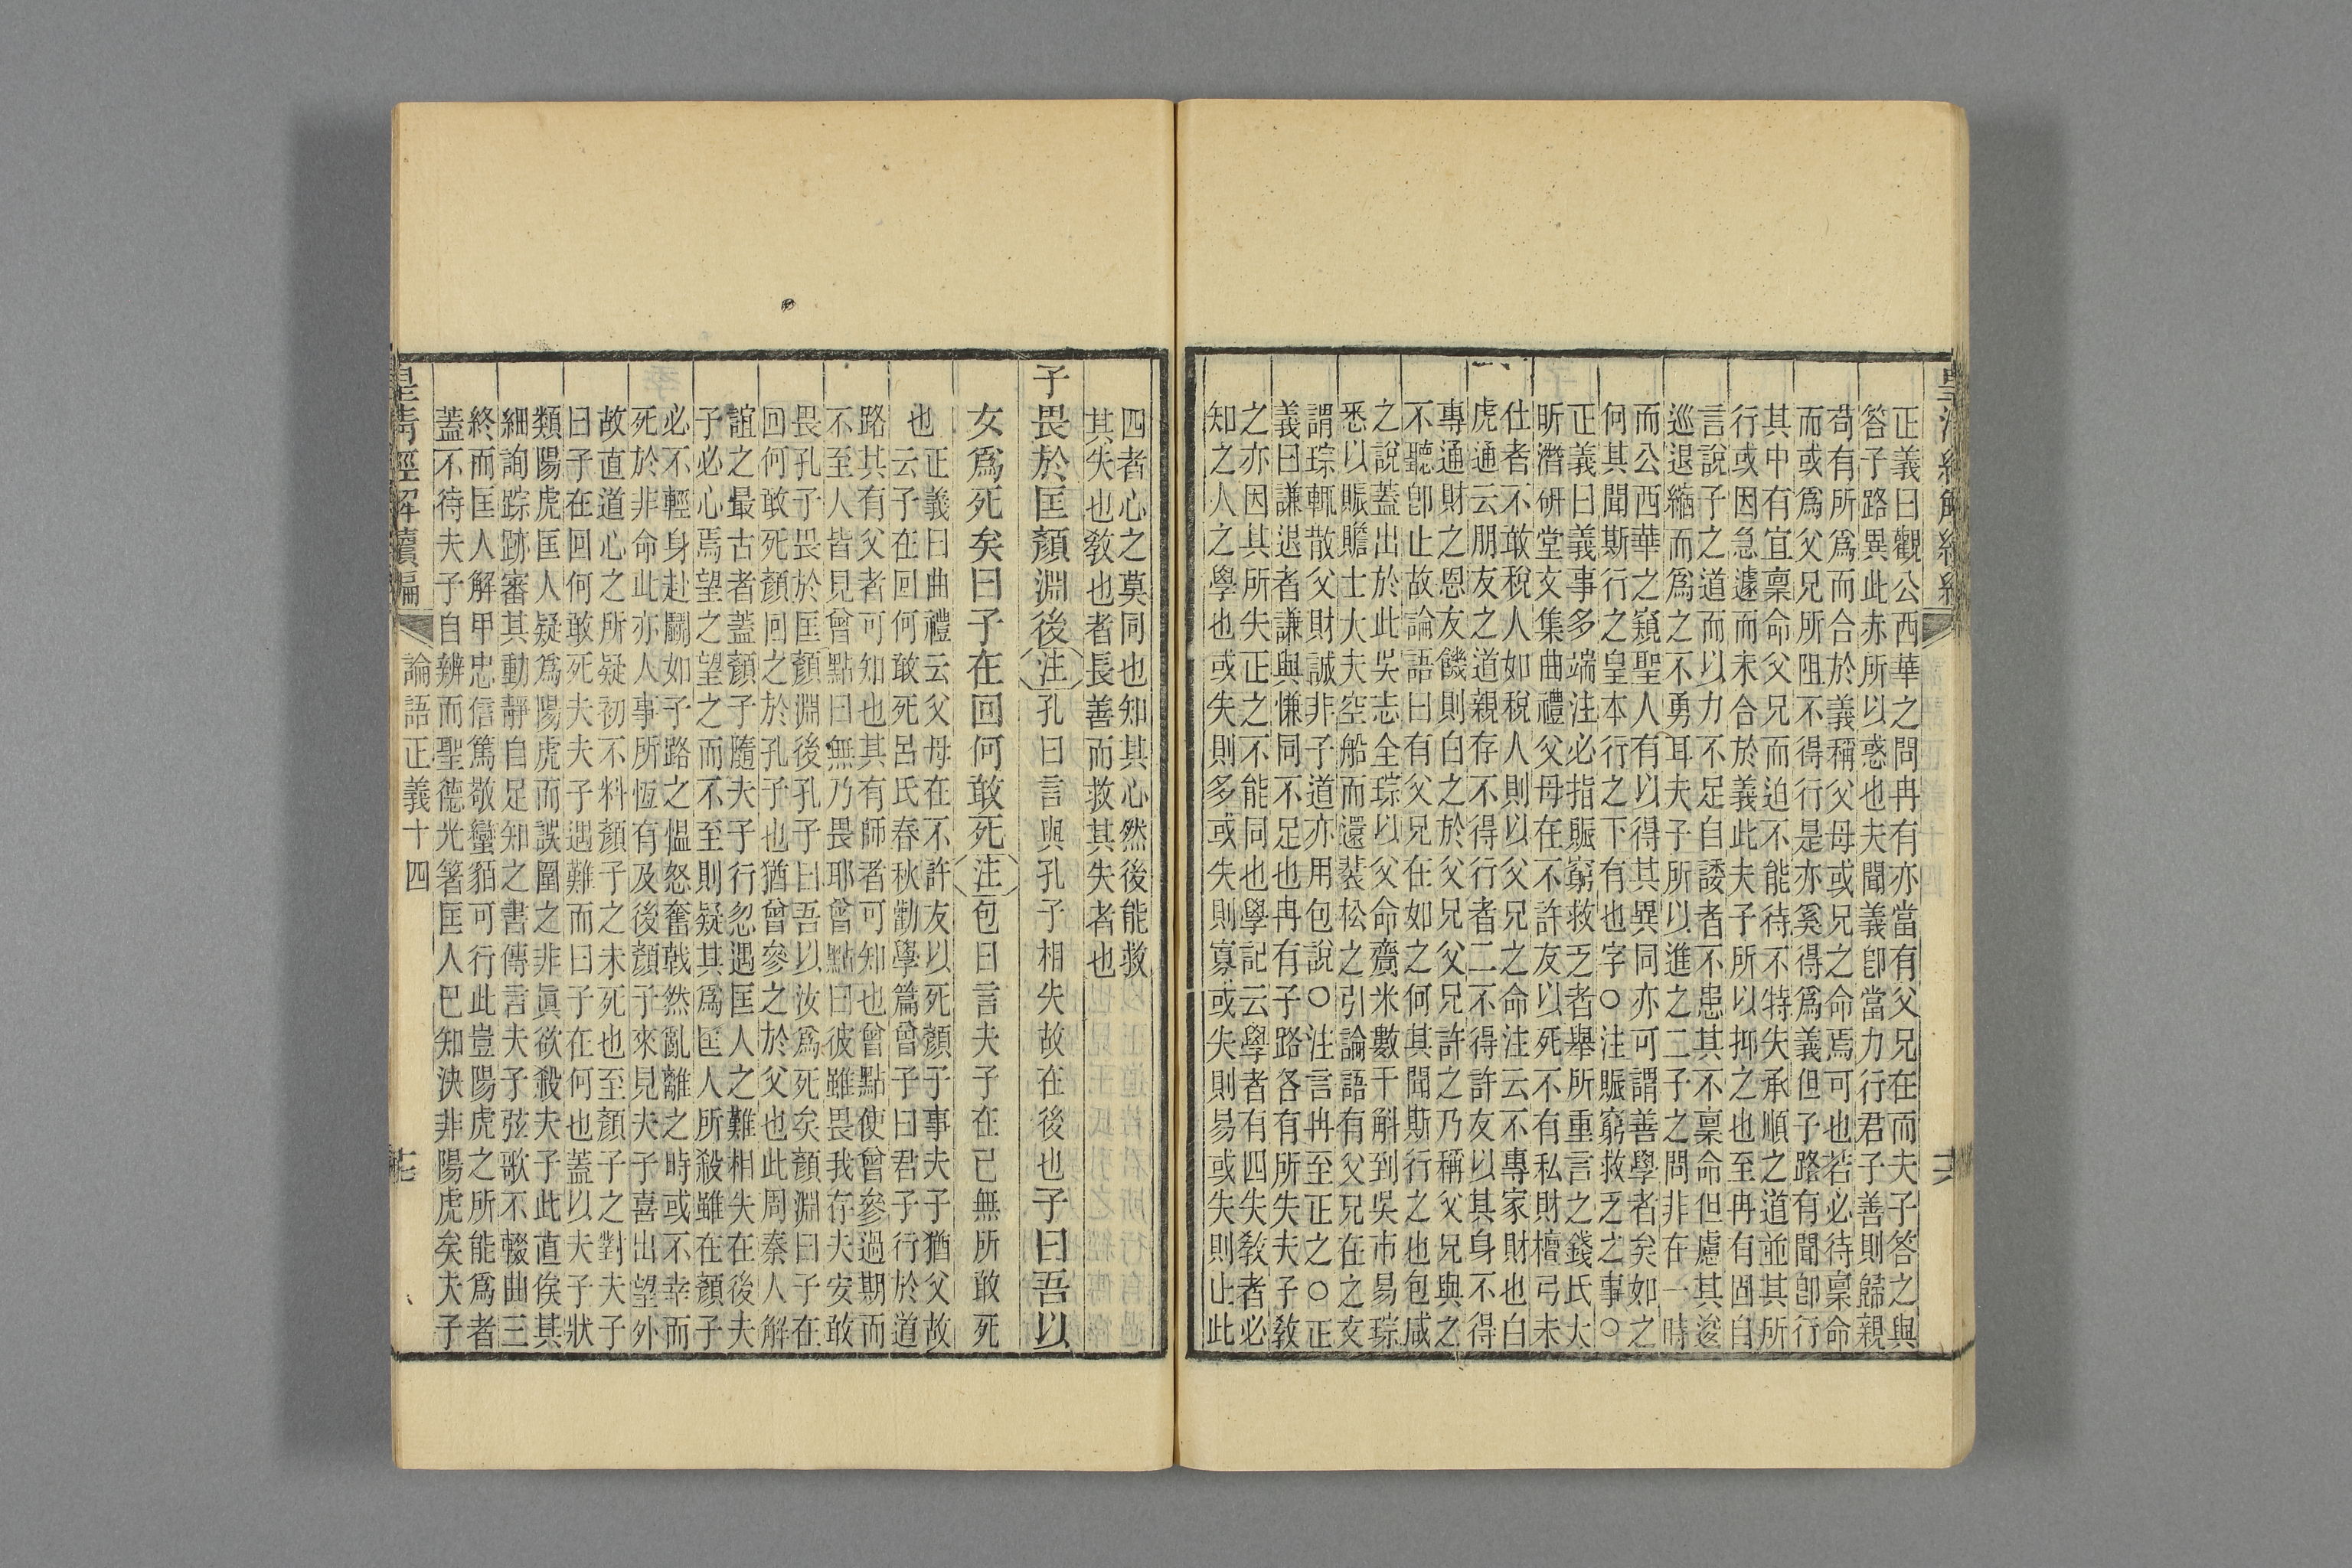 正義曰觀公西華之問冉有亦當有父兄在而夫子答之與
答子路異此赤所以惑也夫聞義卽當力行君子善則歸親
苟有所爲而合於義稱父母或兄之命焉可也若必待稟命
而或爲父兄所阻不得行是亦奚得爲義但子路有聞卽行
其中有宜稟命父兄而迫不能待不特失承順之道並其所
行或因急遽而未合於義此夫子所以抑之也至冉有固自
言說子之道而以力不足自諉者不患其不稟命但慮其逡
巡退縮而爲之不勇耳夫子所以進之二子之問非在一時
而公西華之窺聖人有以得其異同亦可謂善學者矣如之
何其聞斯行之皇本行之下有也字○注賑窮救乏之事○
正義曰義事多端注必指賑窮救乏者舉所重言之錢氏大
昕濳研堂文集曲禮父母在不許友以死不有私財檀弓未
仕者不敢稅人如稅人則以父兄之命注云不專家財也白
虎通云朋友之道親存不得行者二不得許友以其身不得
專通財之恩友饑則白之於父兄父兄許之乃稱父兄與之
不聽卽止故論語曰有父兄在如之何其聞斯行之也包咸
之說蓋出於此吳志全琮以父命齎米數千斛到吳市易琮
悉以賑贍士大夫空船而還裴松之引論語有父兄在之文
謂琮輒散父財誠非子道亦用包說○注言冉至正之○正
義曰謙退者謙與慊同不足也冉有子路各有所失夫子敎
之亦因其所失正之不能同也學記云學者有四失敎者必
知之人之學也或失則多或失則寡或失則易或失則止此
四者心之莫同也知其心然後能救
其失也敎也者長善而救其失者也
子畏於匡顏淵後注孔曰言與孔子相失故在後也子曰吾以
女爲死矣曰子在回何敢死注包曰言夫子在已無所敢死
也正義曰曲禮云父母在不許友以死顏子事夫子猶父故
云子在回何敢死呂氏春秋勸學篇曾子曰君子行於道
路其有父者可知也其有師者可知也曾點使曾參過期而
不至人皆見曾點曰無乃畏耶曾點曰彼雖畏我存夫安敢
畏孔子畏於匡顏淵後孔子曰吾以汝爲死矣顏淵曰子在
回何敢死顏回之於孔子也猶曾參之於父也此周秦人解
誼之最古者蓋顏子隨夫子行忽遇匡人之難相失在後夫
子必心焉望之望之而不至則疑其爲匡人所殺雖在顏子
必不輕身赴鬭如子路之慍怒奮戟然亂離之時或不幸而
死於非命此亦人事所恆有及後顏子來見夫子喜出望外
故直道心之所疑初不料顏子之未死也至顏子之對夫子
曰子在回何敢死夫夫子遇難而曰子在何也蓋以夫子狀
類陽虎匡人疑爲陽虎而誤圍之非眞欲殺夫子此直俟其
細詢踪跡審其動靜自足知之書傳言夫子弦歌不輟曲三
終而匡人解甲忠信篤敬蠻貊可行此豈陽虎之所能爲者
蓋不待夫子自辨而聖德光箸匡人巳知決非陽虎矣夫子
皇淸經解續編 論語正義十四